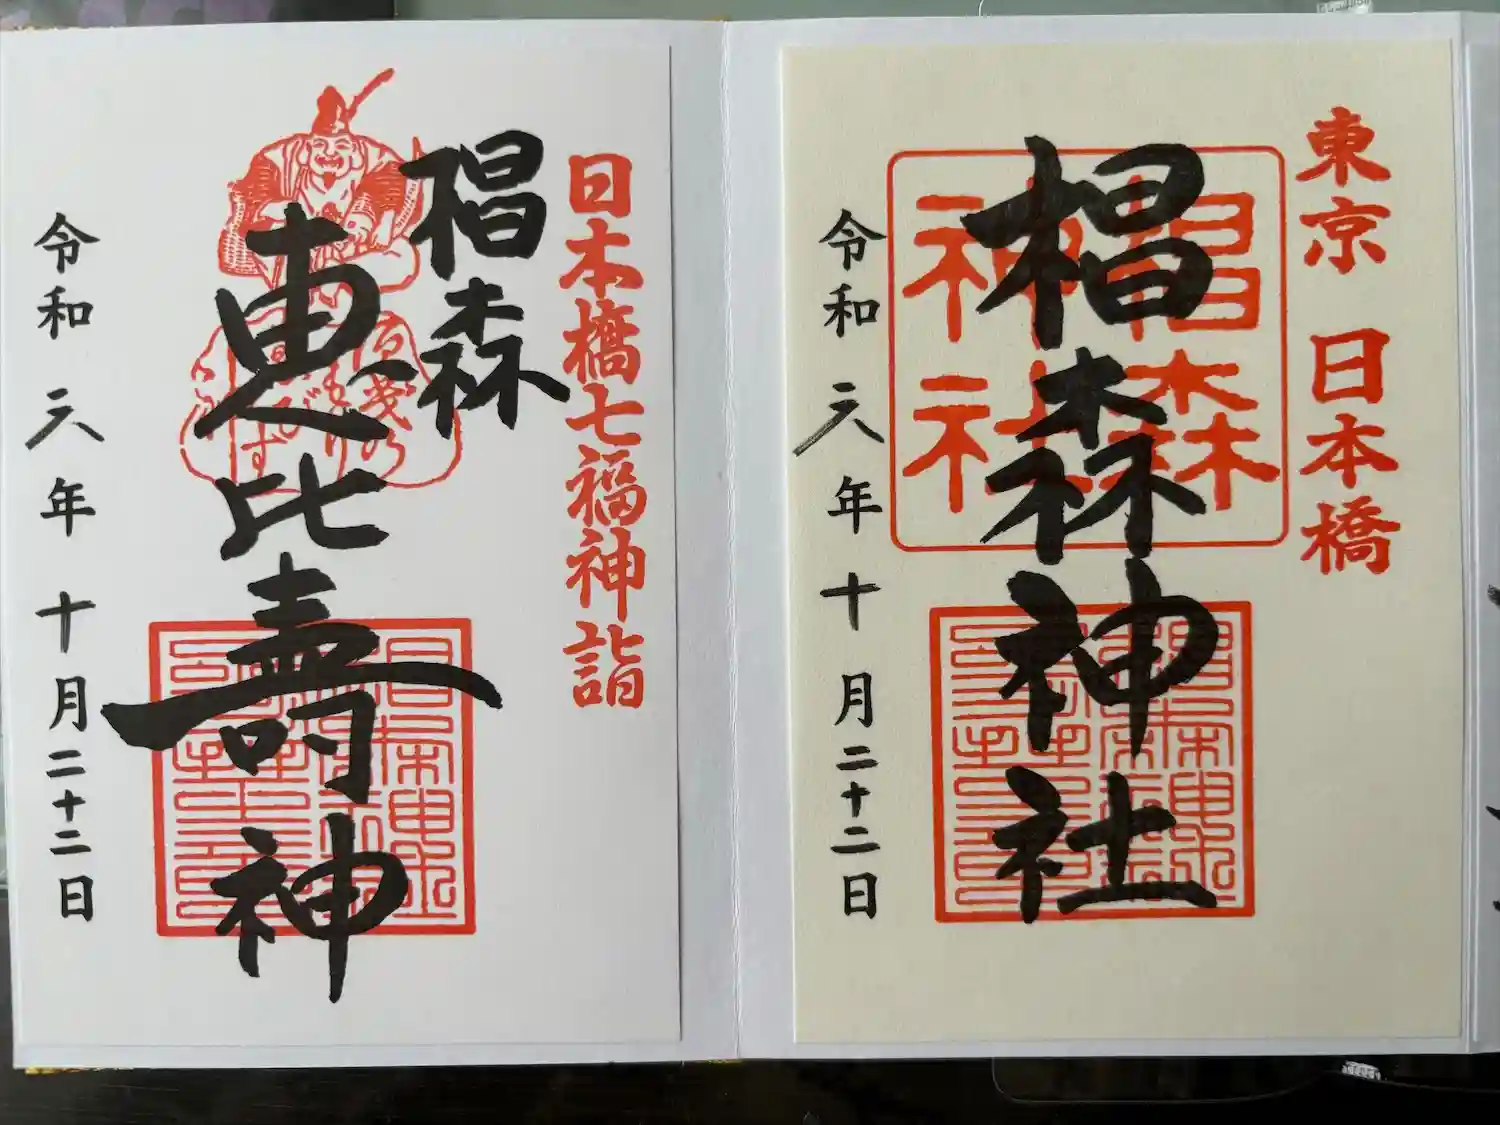 東京 日本橋
椙森神社
椙森
神社
令和六年十月二十二日
日本橋七福神詣
椙森
恵比壽神
令和六年十月二十二日